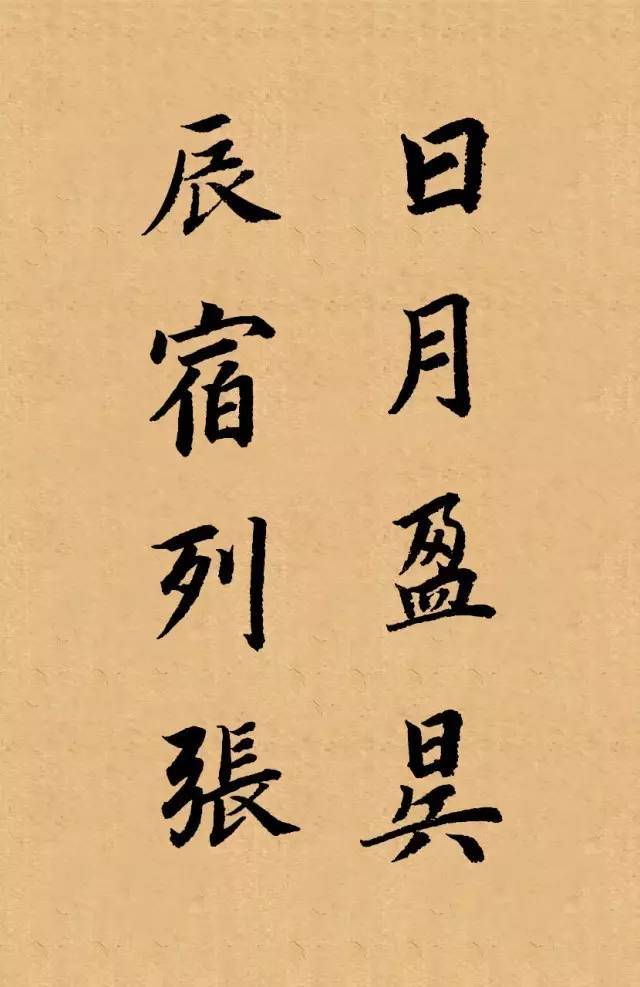 日月盈昃
辰宿列張